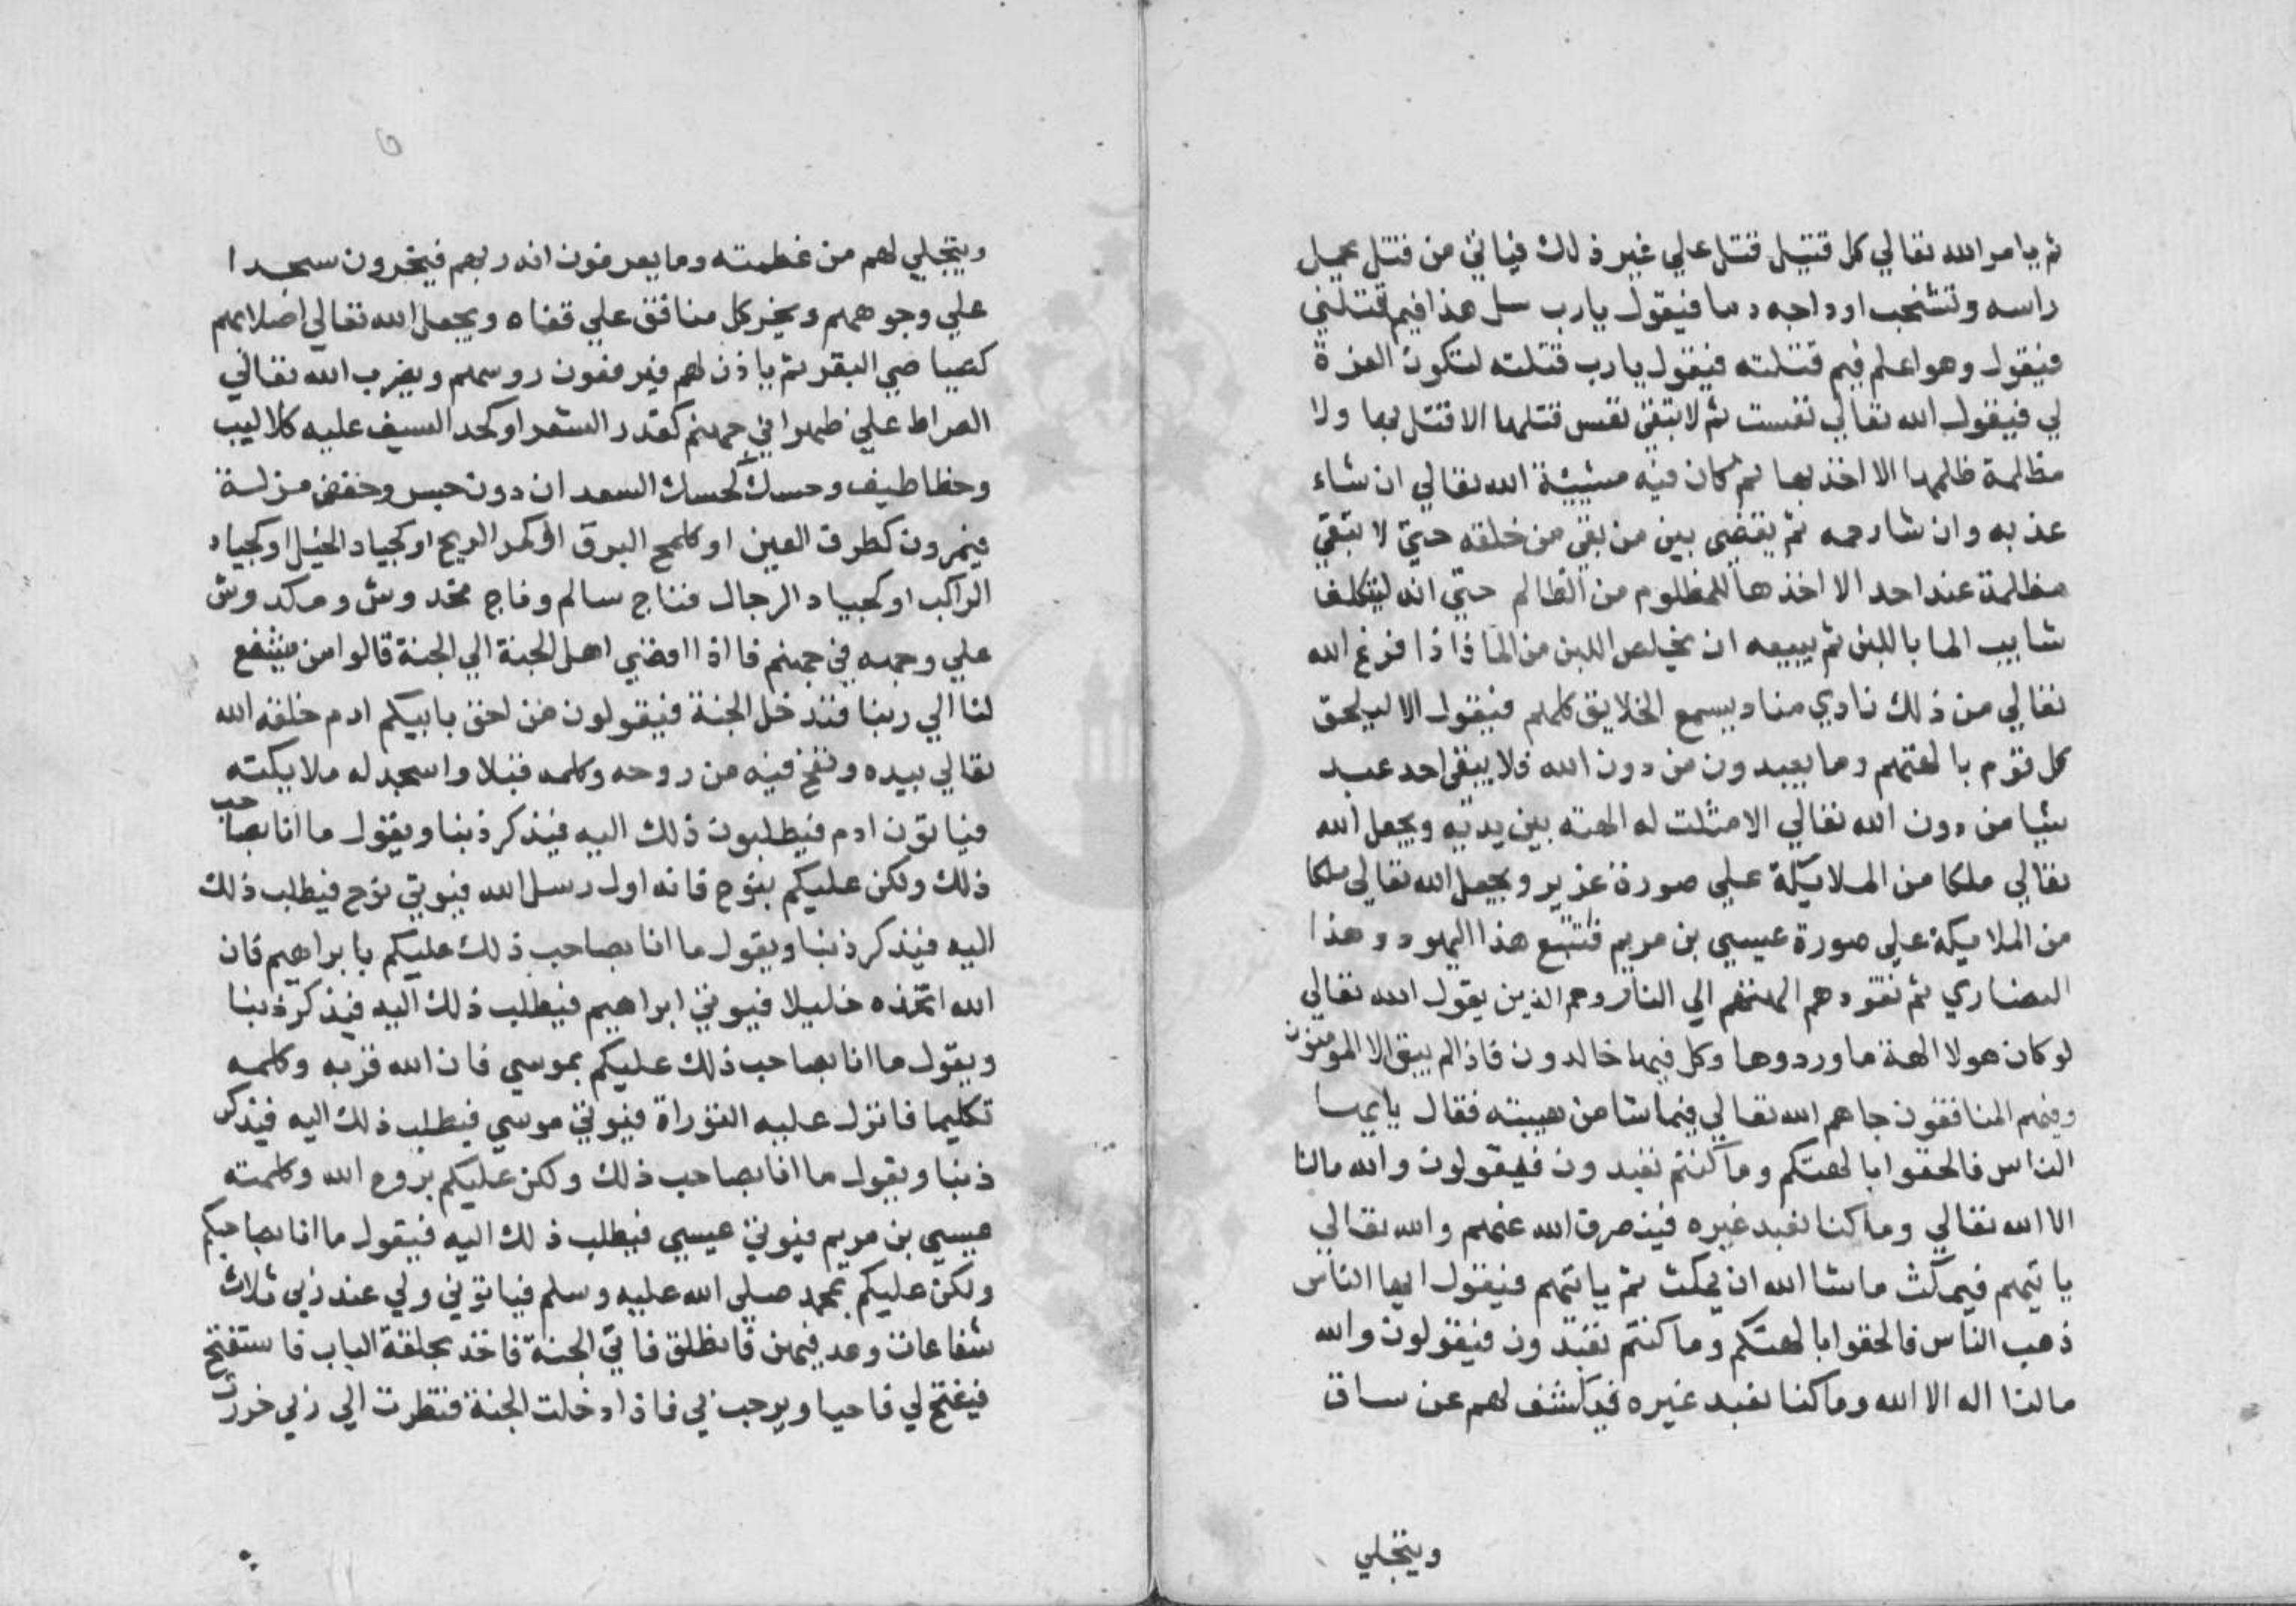 ثم يامر الله تعالي كل قتيل قتل علي غير ذلك فياتي من قتل يحمل
راسه وتشخب اوداجه دما فيقول يارب سل هذا فيم قتلني
فيقول وهو اعلم فيم قتلته فيقول يارب قتلته لتكون العزة
لي فيقول الله تعالي تعست ثم لا تبقي نفس قتلها الا قتل بها ولا
مظلمة ظلمها الا اخذ بها ثم كان فيه مشيئة الله تعالي ان شاء
عذبه وان شا رحمه ثم يقضي بين من بقي من خلقه حتي لا تبقي
مظلمة عند احد الا اخذها للمظلوم من الظالم حتي انه ليتكلف
شايب الما باللبن ثم يبيعه ان يخلص اللبن من الما فاذا فرغ الله
تعالي من ذلك نادي مناد يسمع الخلايق كلهم فيقول الا ليلحق
كل قوم بالهتهم وما يعبدون من دون الله فلا يبقي احد عبد
شيا من دون الله تعالي الا مثلت له الهته بين يديه ويجعل الله
تعالي ملكا من الملائكة علي صورة عزير ويجعل الله تعالي ملكا
من الملايكة علي صورة عيسي بن مريم فتتبع هذا اليهود وهذا
النصاري ثم تقودهم الهتهم الي النار وهم الذين يقول الله تعالي
لو كان هولا الهة ما وردوها وكل فيها خالدون فاذا لم يبق الا المومنون
وفيهم المنافقون جاهم الله تعالي فيما شا من هيبته فقال يايها
الناس فالحقوا بالهتكم وما كنتم تعبدون فيقولون والله مالنا
الا الله تعالي وما كنا نعبد غيره فينصرف الله عنهم والله تعالي
ياتيهم فيمكث ما شا الله ان يمكث ثم ياتيهم فيقول ايها الناس
ذهب الناس فالحقوا بالهتكم وما كنتم تعبدون فيقولون والله
مالنا اله الا الله وما كنا نعبد غيره فيكشف لهم عن ساق
ويتجلي
ويتجلي لهم من عظمته وما يعرفون انه ربهم فيخرون سجدا
علي وجوههم ويخر كل منافق علي قفاه ويجعل الله تعالي اصلابهم
كصياصي البقر ثم ياذن لهم فيرفعون روسهم ويضرب الله تعالي
الصراط علي ظهراني جهنم كقدر الشعر او كحد السيف عليه كلاليب
وخطاطيف وحسك كحسك السعدان دونه جسر دحض مزلة
فيمرون كطرف العين او كلمح البرق او كمر الريح او كجياد الخيل او كجياد
الراكب او كجياد الرجال فناج سالم وناج مخدوش ومكدوش
علي وجهه في جهنم فااذا افضي اهل الجنة الي الجنة قالوا من يشفع
لنا الي ربنا فندخل الجنة فيقولون من احق بابيكم ادم خلقه الله
تعالي بيده ونفخ فيه من روحه وكلمه قبلا واسجد له ملايكته
فياتون ادم فيطلبون ذلك اليه فيذكر ذنبا ويقول ما انا بصاحب
ذلك ولكن عليكم بنوح فانه اول رسل الله فيوتي نوح فيطلب ذلك
اليه فيذكر ذنبا ويقول ما انا بصاحب ذلك عليكم بابراهيم فان
الله اتخذه خليلا فيوتي ابراهيم فيطلب ذلك اليه فيذكر ذنبا
ويقول ما انا بصاحب ذلك عليكم بموسي فان الله قربه وكلمه
تكليما فانزل عليه التوراة فيوتي موسي فيطلب ذلك اليه فيذكر
ذنبا ويقول ما انا بصاحب ذلك ولكن عليكم بروح الله وكلمته
عيسي بن مريم فيوتي عيسي فيطلب ذلك اليه فيقول ما انا بصاحبكم
ولكن عليكم بمحمد صلي الله عليه وسلم فياتوني ولي عند ربي ثلاث
شفاعات وعدنيهن فانطلق فاتي الجنة فاخذ بحلقة الباب فاستفتح
فيفتح لي فاحيا ويرحب بي فاذا دخلت الجنة فنظرت الي ربي خررت